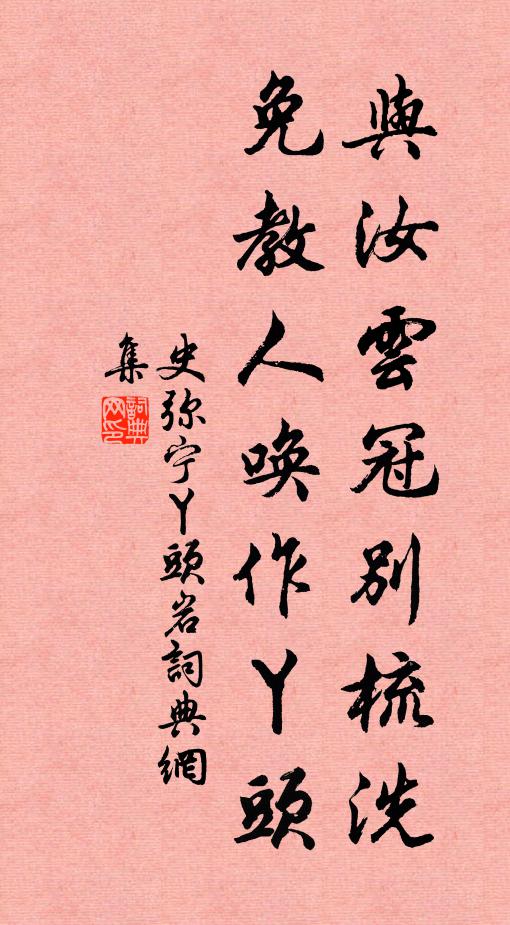 與汝雲冠別梳洗
免教人喚作丫頭
史弥宁丫頭岩詞典網
集
詞典
网印